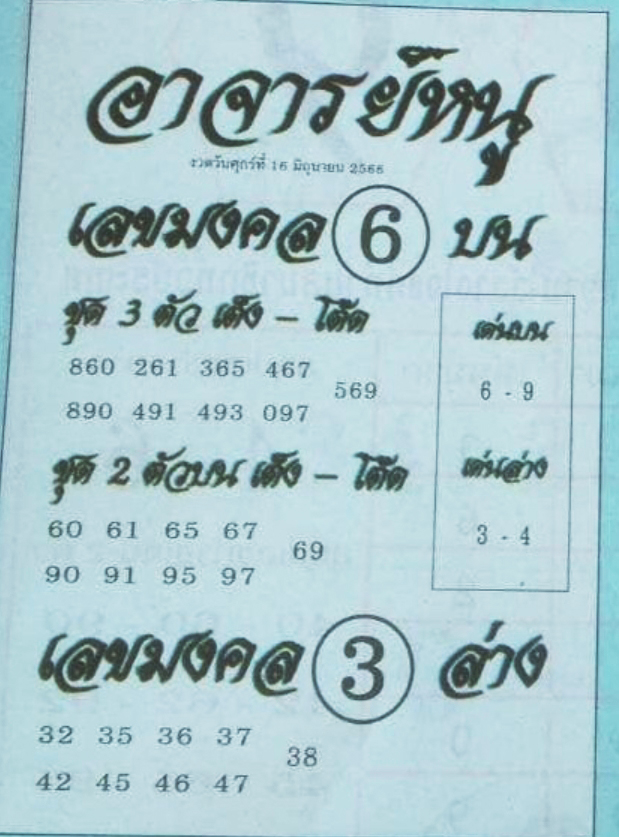 อาจารย์หนู
งวดวันศุกร์ที่ 16 มิถุนายน 2566
เลขมงคล 6 บน
ชุด 3 ตัว เต็ง - โต๊ด
860 261 365 467
569
890 491 493 097
เด่นบน
6 - 9
ชุด 2 ตัวบน เต็ง - โต๊ด
60 61 65 67
69
90 91 95 97
เด่นล่าง
3 - 4
เลขมงคล 3 ล่าง
32 35 36 37
38
42 45 46 47